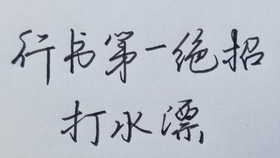 行书第一绝招
打水漂